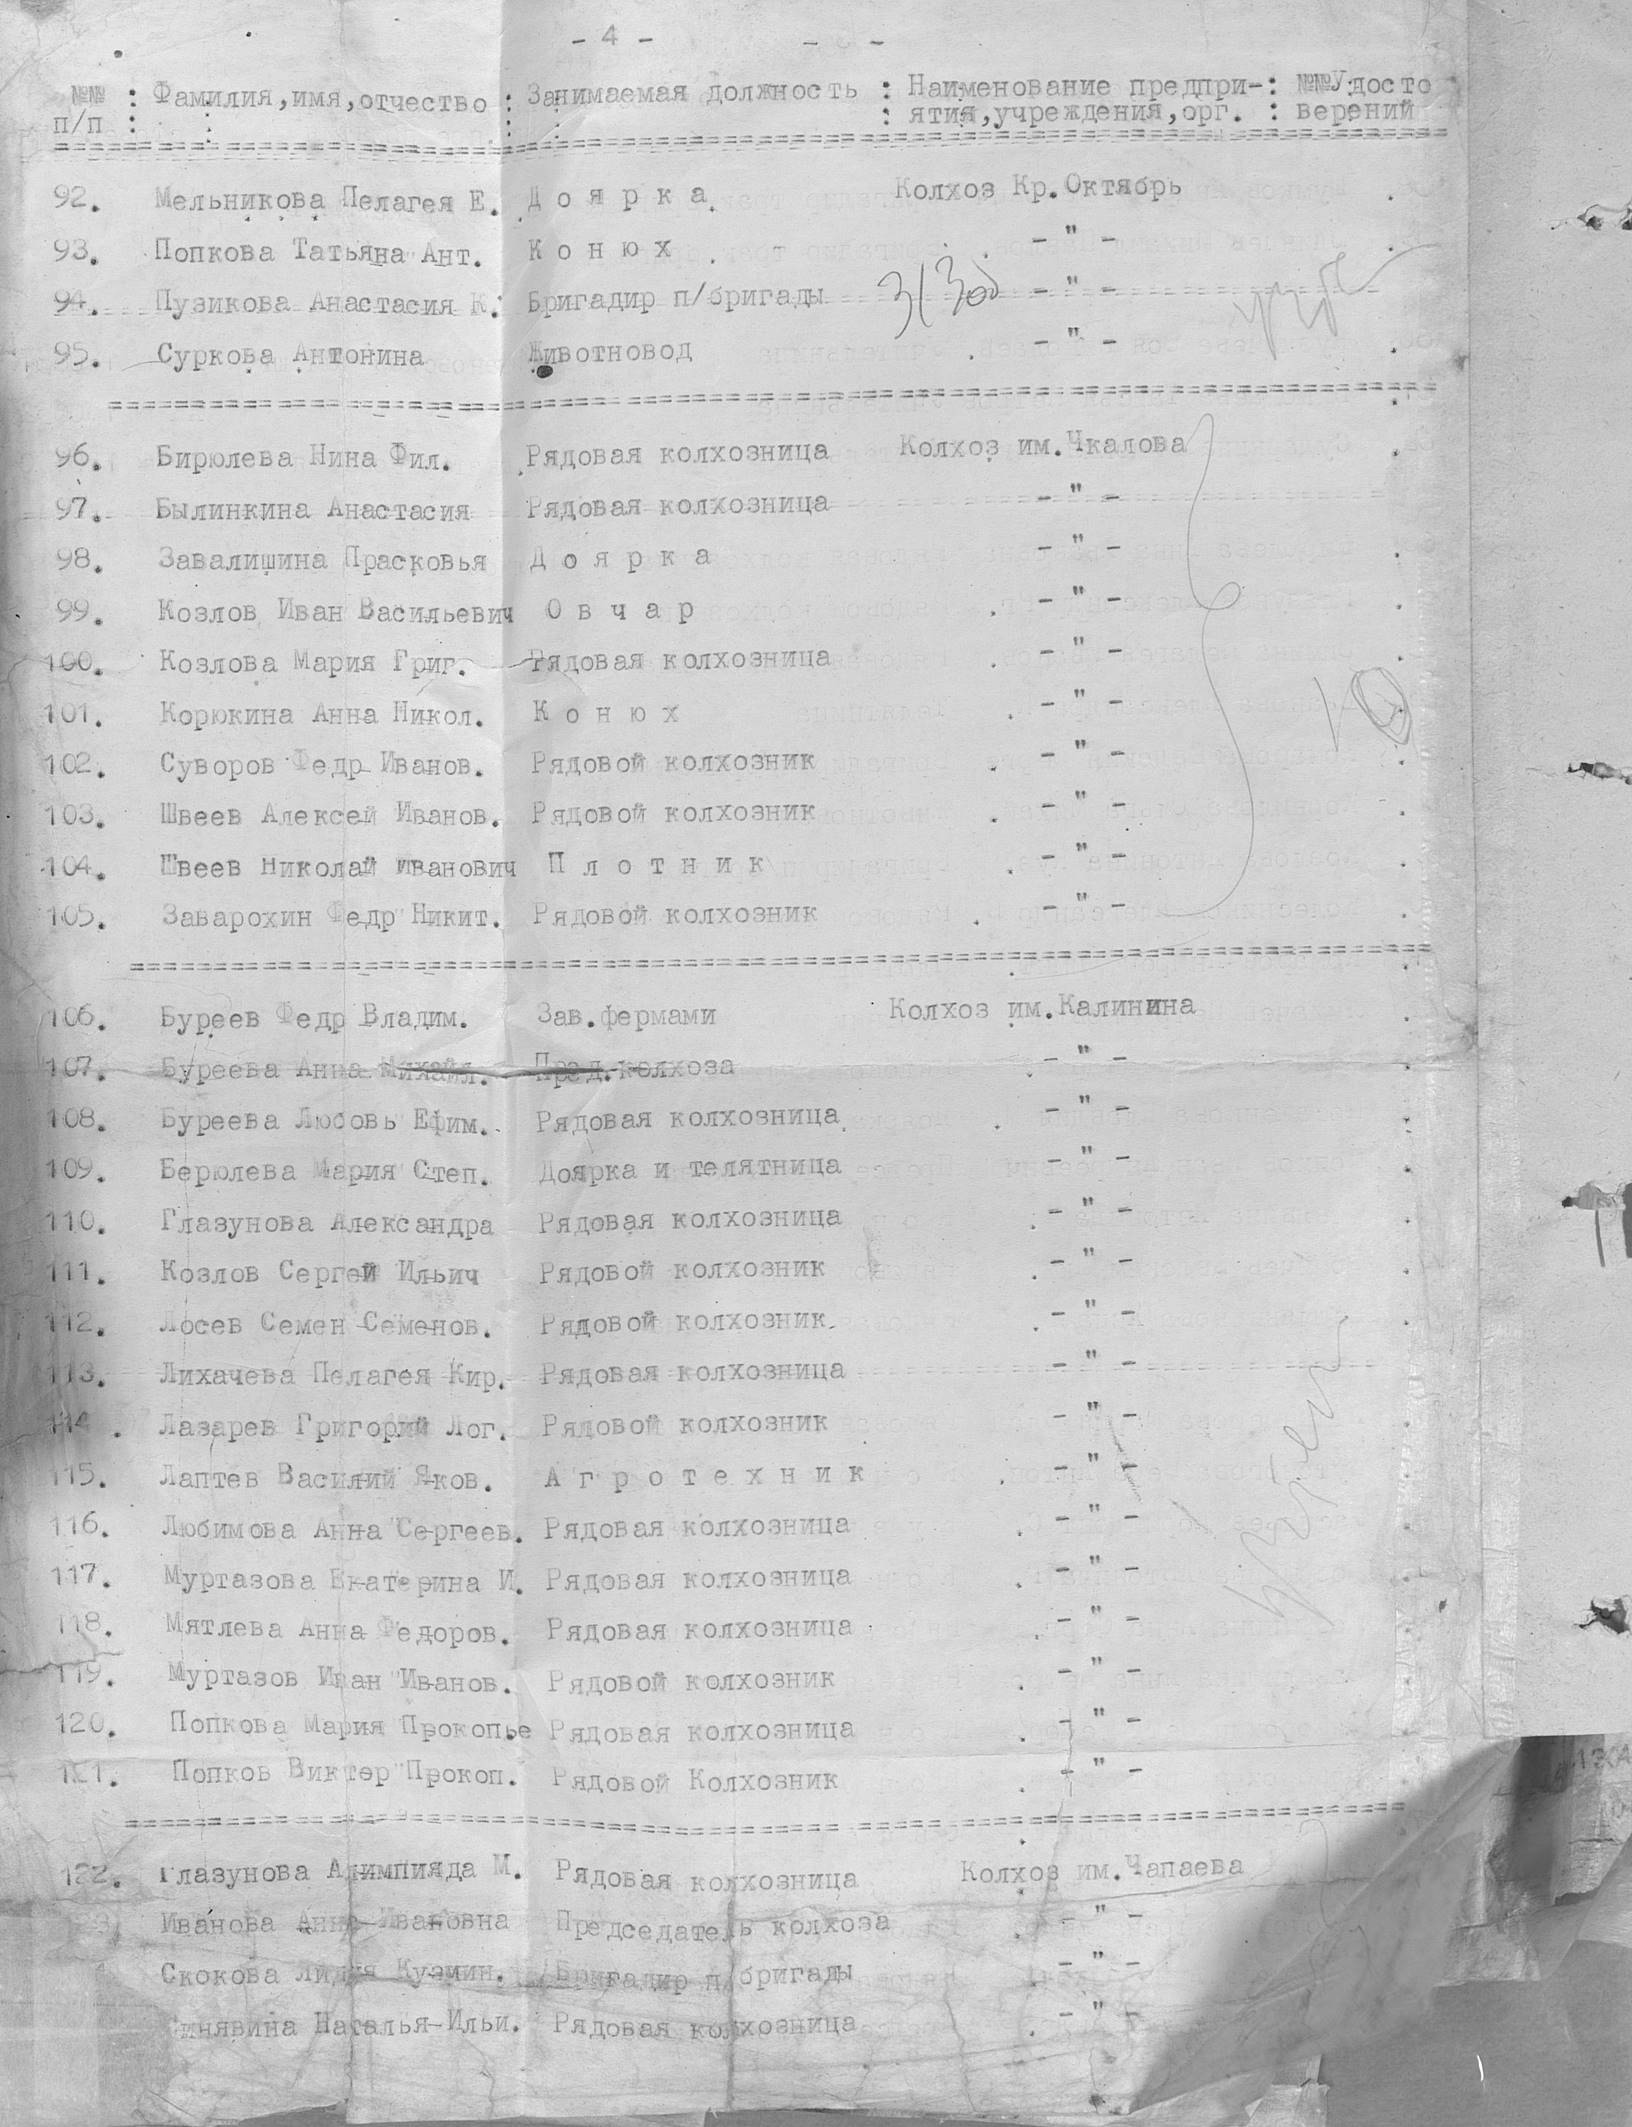 - 4 -
№№ : Фамилия,имя,отчество : Занимаемая должность : Наименование предпри- : №№Удосто
п/п : : : : : ятия,учреждения,орг. : верений
92. Мельникова Пелагея Е. Доярка Колхоз Кр.Октябрь
93. Попкова Татьяна Ант. Конюх - " -
94. Пузикова Анастасия К. Бригадир п/бригады - " -
95. Суркова Антонина Животновод - " -
96. Бирюлева Нина Фил. Рядовая колхозница Колхоз им.Чкалова
97. Былинкина Анастасия Рядовая колхозница - " -
98. Завалишина Прасковья Доярка - " -
99. Козлов Иван Васильевич Овчар - " -
100. Козлова Мария Григ. Рядовая колхозница - " -
101. Корюкина Анна Никол. Конюх - " -
102. Суворов Федр Иванов. Рядовой колхозник - " -
103. Швеев Алексей Иванов. Рядовой колхозник - " -
104. Швеев Николай Иванович Плотник - " -
105. Заварохин Федр Никит. Рядовой колхозник - " -
106. Буреев Федр Владим. Зав.фермами Колхоз им.Калинина
107. Буреева Анна Михайл. Пред.колхоза - " -
108. Буреева Любовь Ефим. Рядовая колхозница - " -
109. Берюлева Мария Степ. Доярка и телятница - " -
110. Глазунова Александра Рядовая колхозница - " -
111. Козлов Сергей Ильич Рядовой колхозник - " -
112. Лосев Семен Семенов. Рядовой колхозник. - " -
113. Лихачева Пелагея Кир. Рядовая колхозница - " -
114 . Лазарев Григорий Лог. Рядовой колхозник - " -
115. Лаптев Василий Яков. Агротехник - " -
116. Любимова Анна Сергеев. Рядовая колхозница - " -
117. Муртазова Екатерина И. Рядовая колхозница - " -
118. Мятлева Анна Федоров. Рядовая колхозница - " -
119. Муртазов Иван Иванов. Рядовой колхозник - " -
120. Попкова Мария Прокопье Рядовая колхозница - " -
121. Попков Виктор Прокоп. Рядовой Колхозник - " -
122. Глазунова Алимпияда М. Рядовая колхозница Колхоз им.Чапаева
Иванова Анна Ивановна Председатель колхоза - " -
Скокова Лидия Кузмин. Бригадир п/бригады - " -
Наталья Ильи. Рядовая колхозница - " -